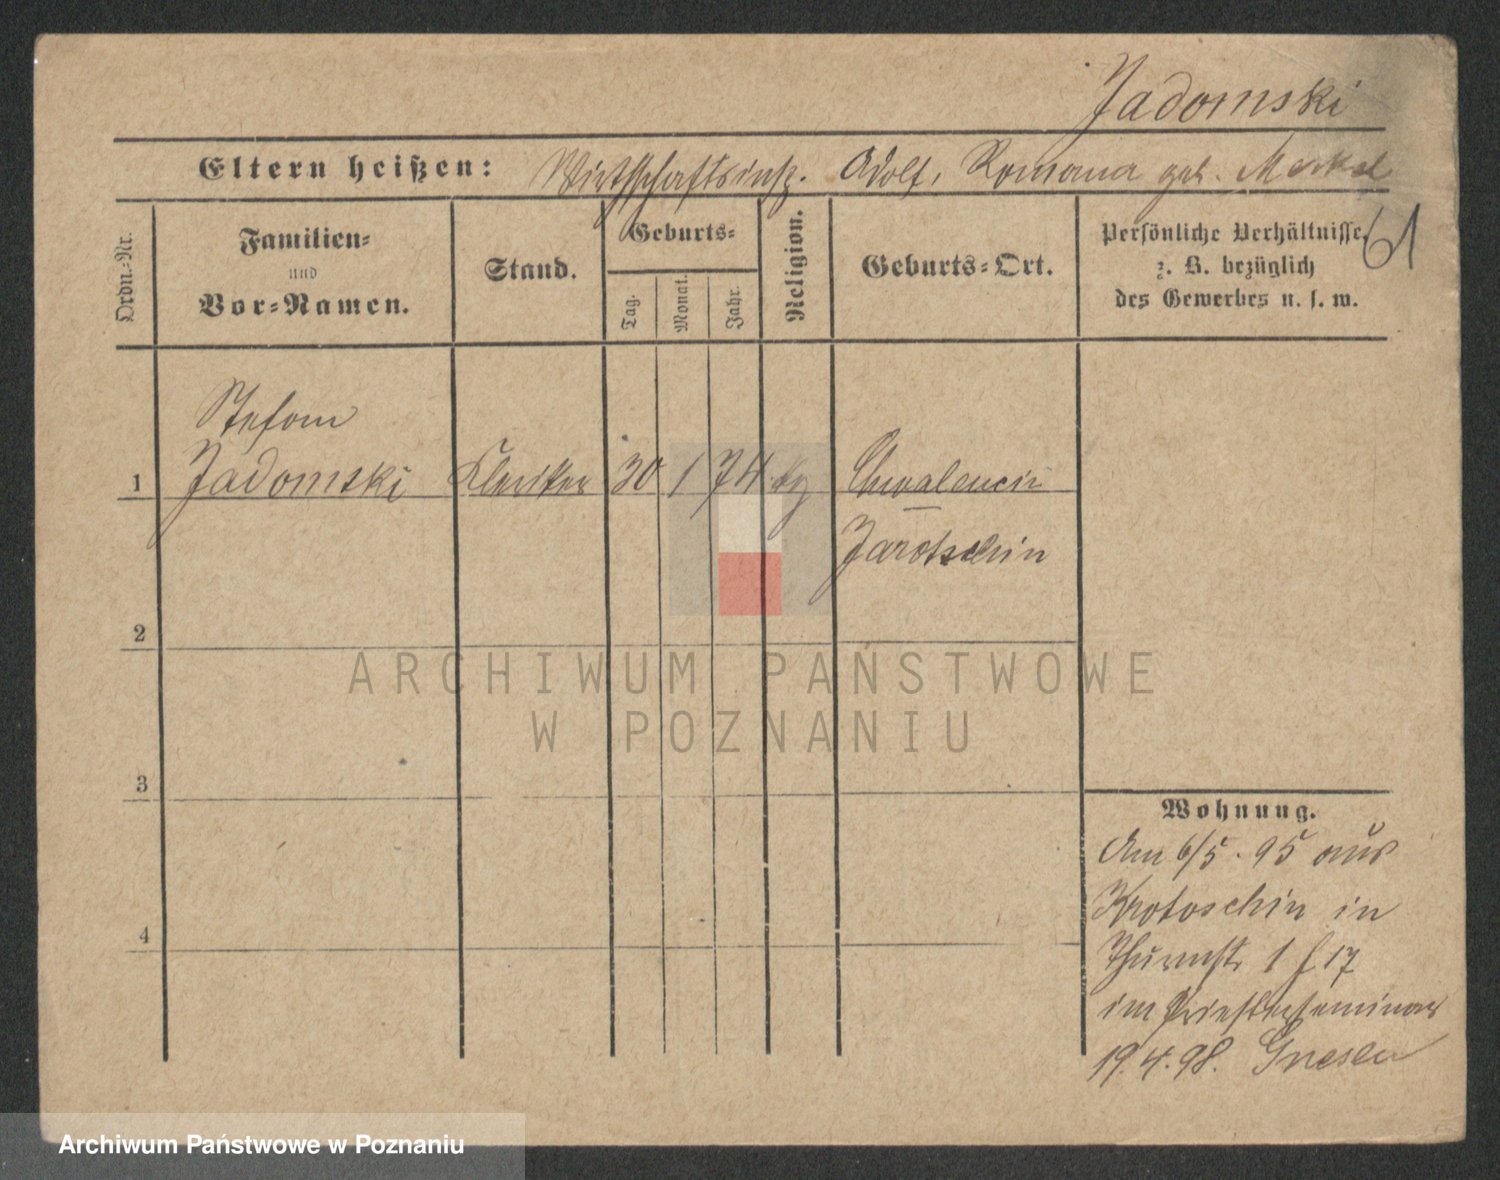 Jadomski
Eltern heißen: Wirtschaftsinsp. Adolf, Romana geb. Merkel
61
Ordn.-Nr.
Familien-
und
Vor-Namen.
Stand.
Geburts-
Tag.
Monat.
Jahr.
Religion.
Geburts-Ort.
Persönliche Verhältnisse,
z. B. bezüglich
des Gewerbes u. s. w.
Stefan
1 Jadomski Kleriker 30 1 74 kg
Jarotschin
2
3
4
Wohnung.
Am 6/5. 95 aus
Krotoschin in
Thurmstr 1 f 17
im Priesterseminar
19.4.98. Gnesen
ARCHIWUM PAŃSTWOWE
W POZNANIU
Archiwum Państwowe w Poznaniu